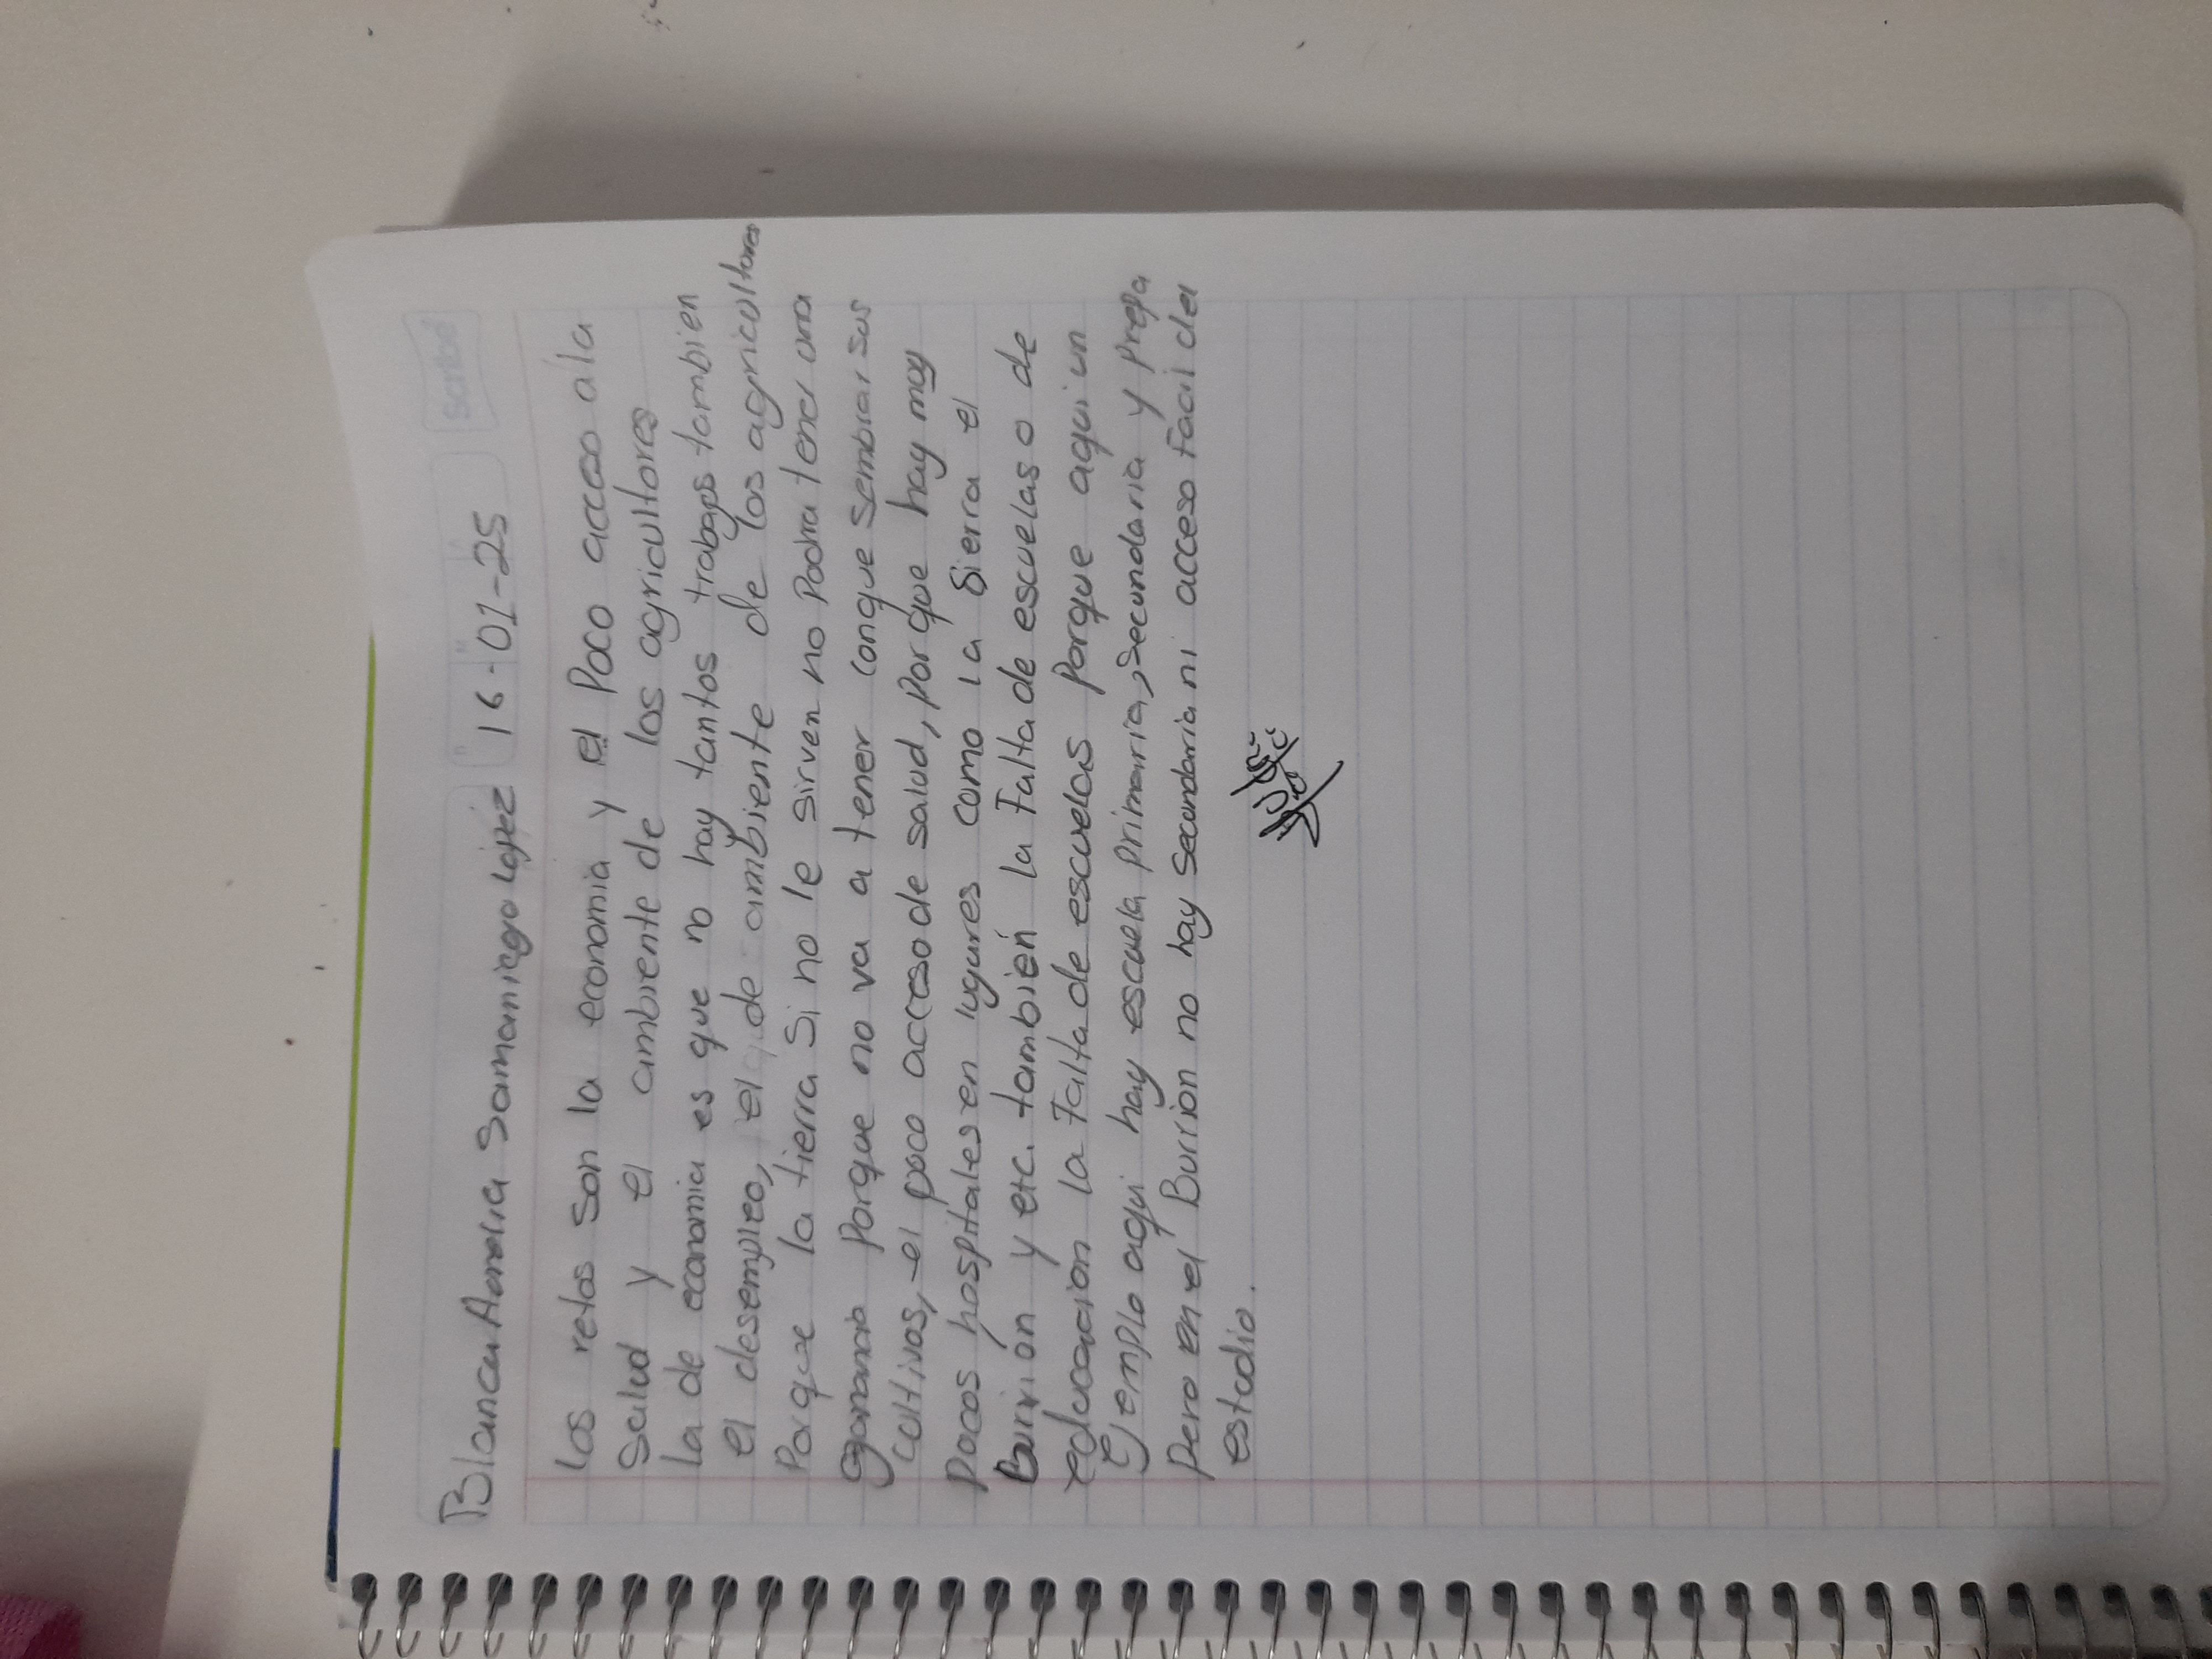 Scribe
Blanca Amalia Samaniego López 16-01-25
Los retos son la economia y el Poco acceso a la
Salud y el ambiente de los agricultores
La de economia es que no hay tantos trabajos tambien
el desempleo, el de ambiente de los agricultores
Porque la tierra Si no le sirven no Podra tener una
ganancia Porque no va a tener conque sembrar sus
cultivos, el poco acceso de salud, Porque hay muy
Pocos hospitales en lugares como la Sierra el
Burrion y etc. también la falta de escuelas o de
educacion la falta de escuelas Porque aqui un
Ejemplo aqui hay escuela primaria, Secundaria y Prepa
Pero en el Burrion no hay Secundaria ni acceso facil del
estudio.